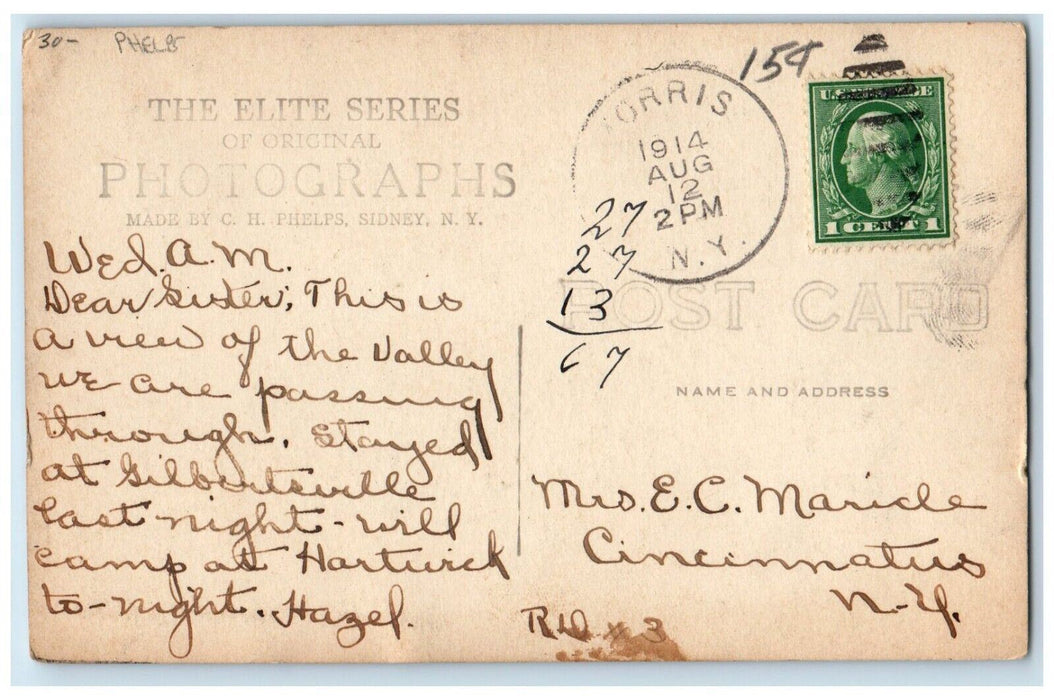 30-
PHELPS
THE ELITE SERIES
OF ORIGINAL
PHOTOGRAPHS
MADE BY C. H. PHELPS, SIDNEY, N. Y.
Wed. A.M.
Dear Sister; This is
a view of the Valley
we are passing
through. Stayed
at Gilbertsville
last night - will
camp at Hartwick
to-night. Hazel.
MORRIS
1914
AUG
12
2 PM
N.Y.
15¢
U.S. POSTAGE
1 CENT 1
27
27
13
67
POST CARD
NAME AND ADDRESS
Mrs. E. C. Maricle
Cincinnatus
N-Y.
RD x 3